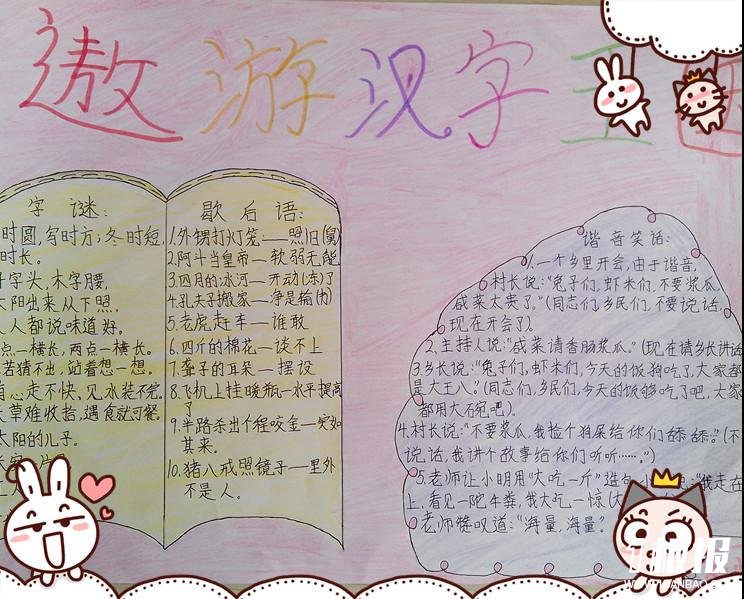 遨游汉字王
字谜:
时圆,写时方;冬时短,
时长。
字头,木字腰,
阳出来从下照,
人都说味道好。
点一横长,两点一横长。
若猜不出,站着想一想。
走不快,见水装不完,
草难收拾,遇食就可餐。
太阳的儿子。
歇后语:
1.外甥打灯笼——照旧(舅)
2.阿斗当皇帝—软弱无能
3.四月的冰河—开动(冻)了
4.孔夫子搬家—净是输(书)
5.老虎赶车—谁敢
6.四斤的棉花—谈不上
7.聋子的耳朵—摆设
8.飞机上挂暖瓶—水平提高
了
9.半路杀出个程咬金—突如
其来。
10.猪八戒照镜子—里外
不是人。
谐音笑话:
1.一个乡里开会,由于谐音,
村长说:“兔子们,虾米们,不要浆瓜,
咸菜太贵了。”(同志们,乡民们,不要说话,
现在开会了)。
2.主持人说:“咸菜请香肠浆瓜。”(现在请乡长讲话
3.乡长说:“兔子们,虾米们,今天的饭狗吃了,大家都
是大王八。(同志们,乡民们,今天的饭够吃了吧,大家
都用大碗吧)。
4.村长说:“不要浆瓜,我捡个狗屎给你们舔舔。”(不
说话,我讲个故事给你们听听……。”)
5.老师让小明用“大吃一斤”造句,小 :“我走在
上,看见一陀牛粪,我大吃一惊(
老师赞叹道:“海量,海量”。